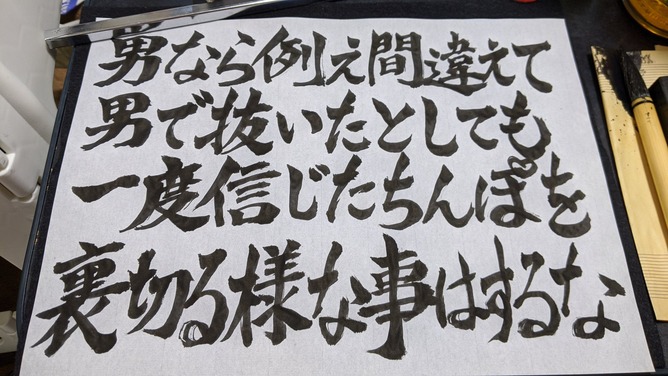 男なら例え間違えて
男で抜いたとしても
一度信じたちんぽを
裏切る様な事はするな